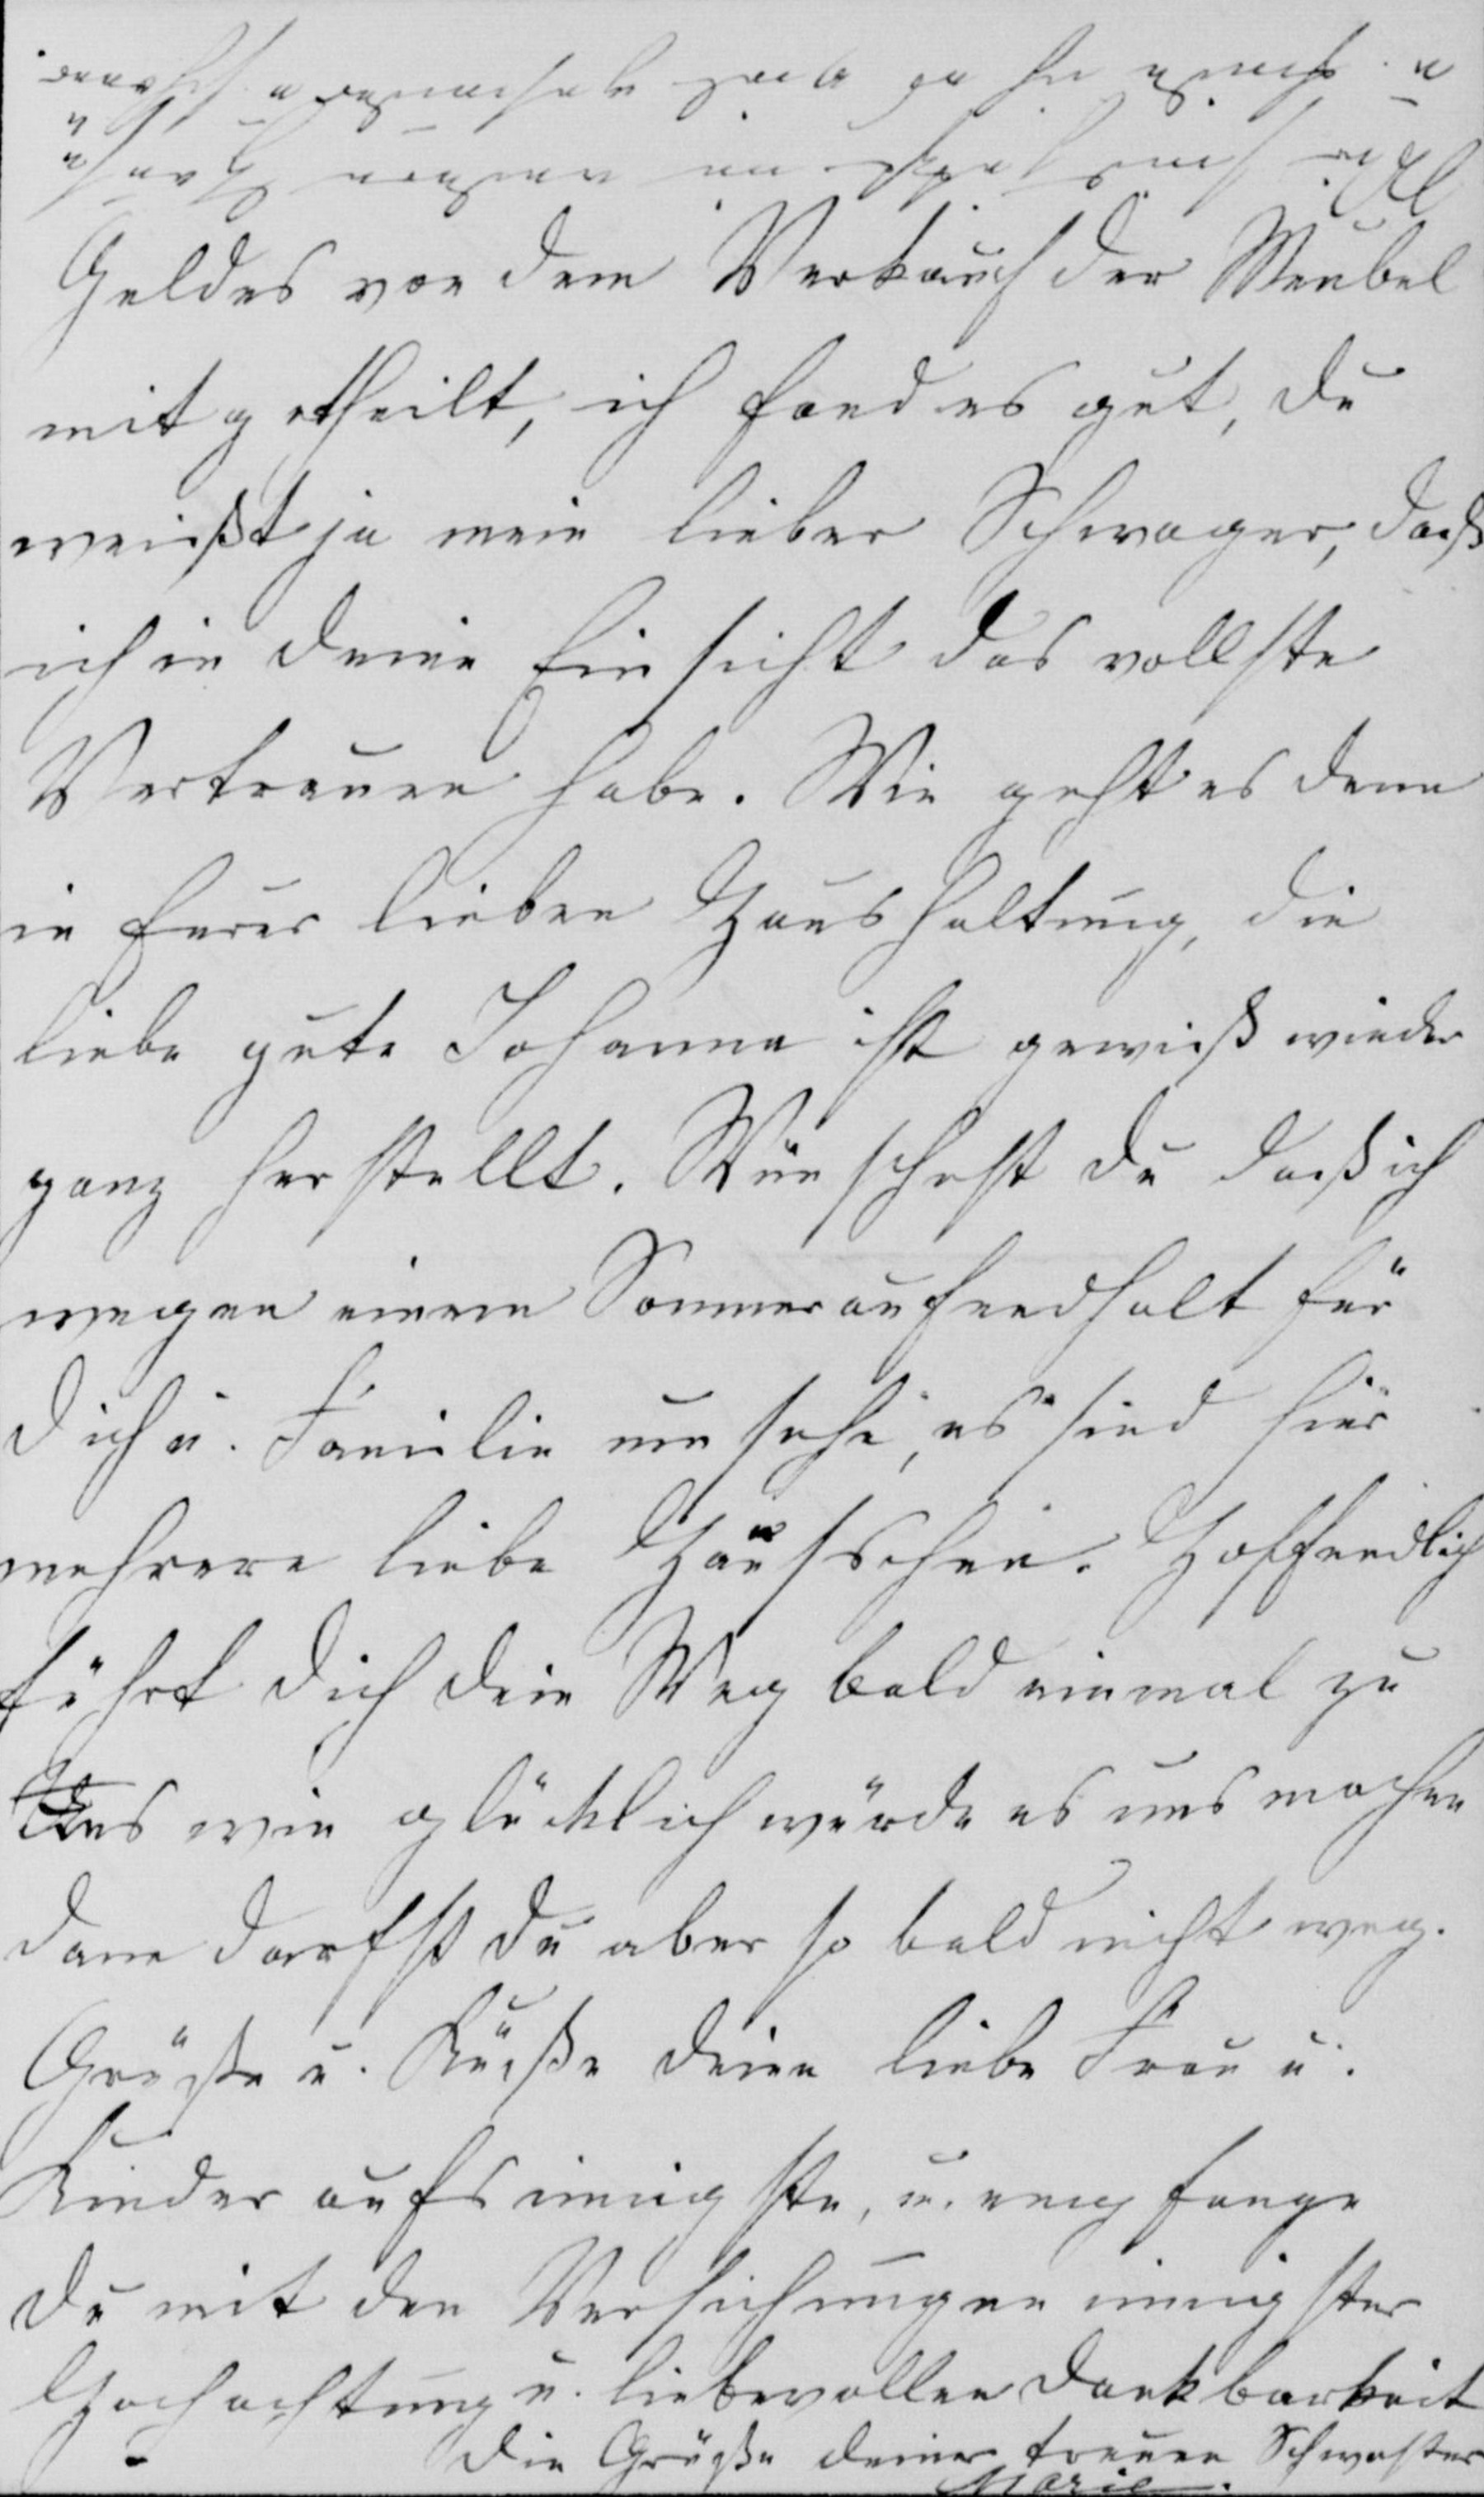 Geldes von dem Verkauf der Meubel
mit getheilt, ich fand es gut, du
weißt ja mein lieber Schwager, daß
ich in deine Einsicht das vollste
Vertrauen habe. Wie geht es denn
in Eurer lieben Haushaltung, die
liebe gute Johanna ist gewiß wieder
ganz herstellt. Wünschest du daß ich
wegen einem Sommeraufendhalt für
dich u. Familie um sehe, es sind hier
mehrere liebe Häuschen. Hoffendlich
führt dich dein Weg bald einmal zu
Uns wie glücklich würde es uns machen
dann darfst du aber so bald nicht weg.
Grüße u. Küße deine liebe Frau u.
Kinder aufs innigste, u. empfange
du mit den Versichungen innigster
Hochachtung u. liebevollen Dankbarkeit
die Grüße deiner treuen Schwester
Marie.